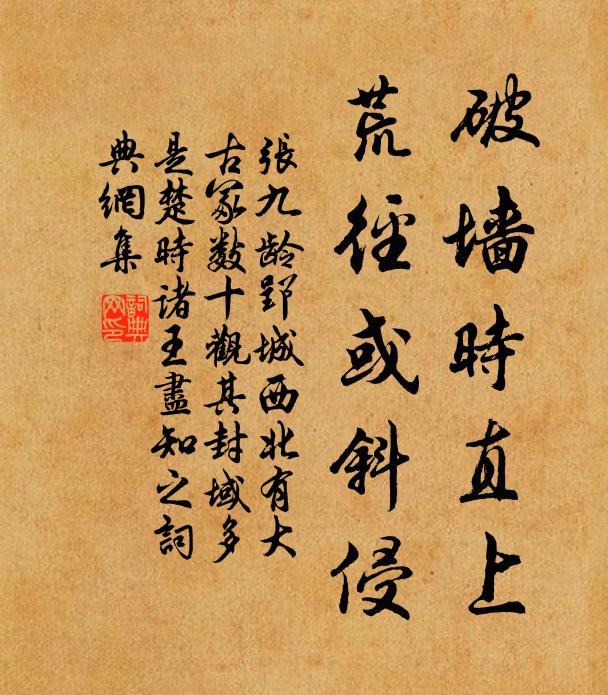 破墙時直上
荒徑或斜侵
張九龄郢城西北有大
古冢數十觀其封域多
是楚時諸王盡知之詞
典網集
詞典网印